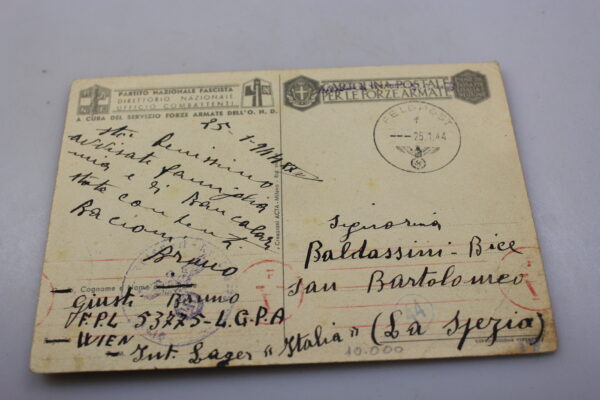 PARTITO NAZIONALE FASCISTA
DIRETTORIO NAZIONALE
UFFICIO COMBATTENTI
A CURA DEL SERVIZIO FORZE ARMATE DELL'O. N. D.
25 - 1 -
sto Benissimo
avvisate famiglia
mia e di
state contenti
Bacioni
Bruno
Cognome e Nome
Giusti Bruno
F.P.L 53775-L.G.P.A
WIEN
Int. Lager "Italia"
CARTOLINA POSTALE
PER LE FORZE ARMATE
FELDPOST
f
--- 25.1.44
Signorina
Baldassini-Bice
San Bartolomeo
(La Spezia)
10.000